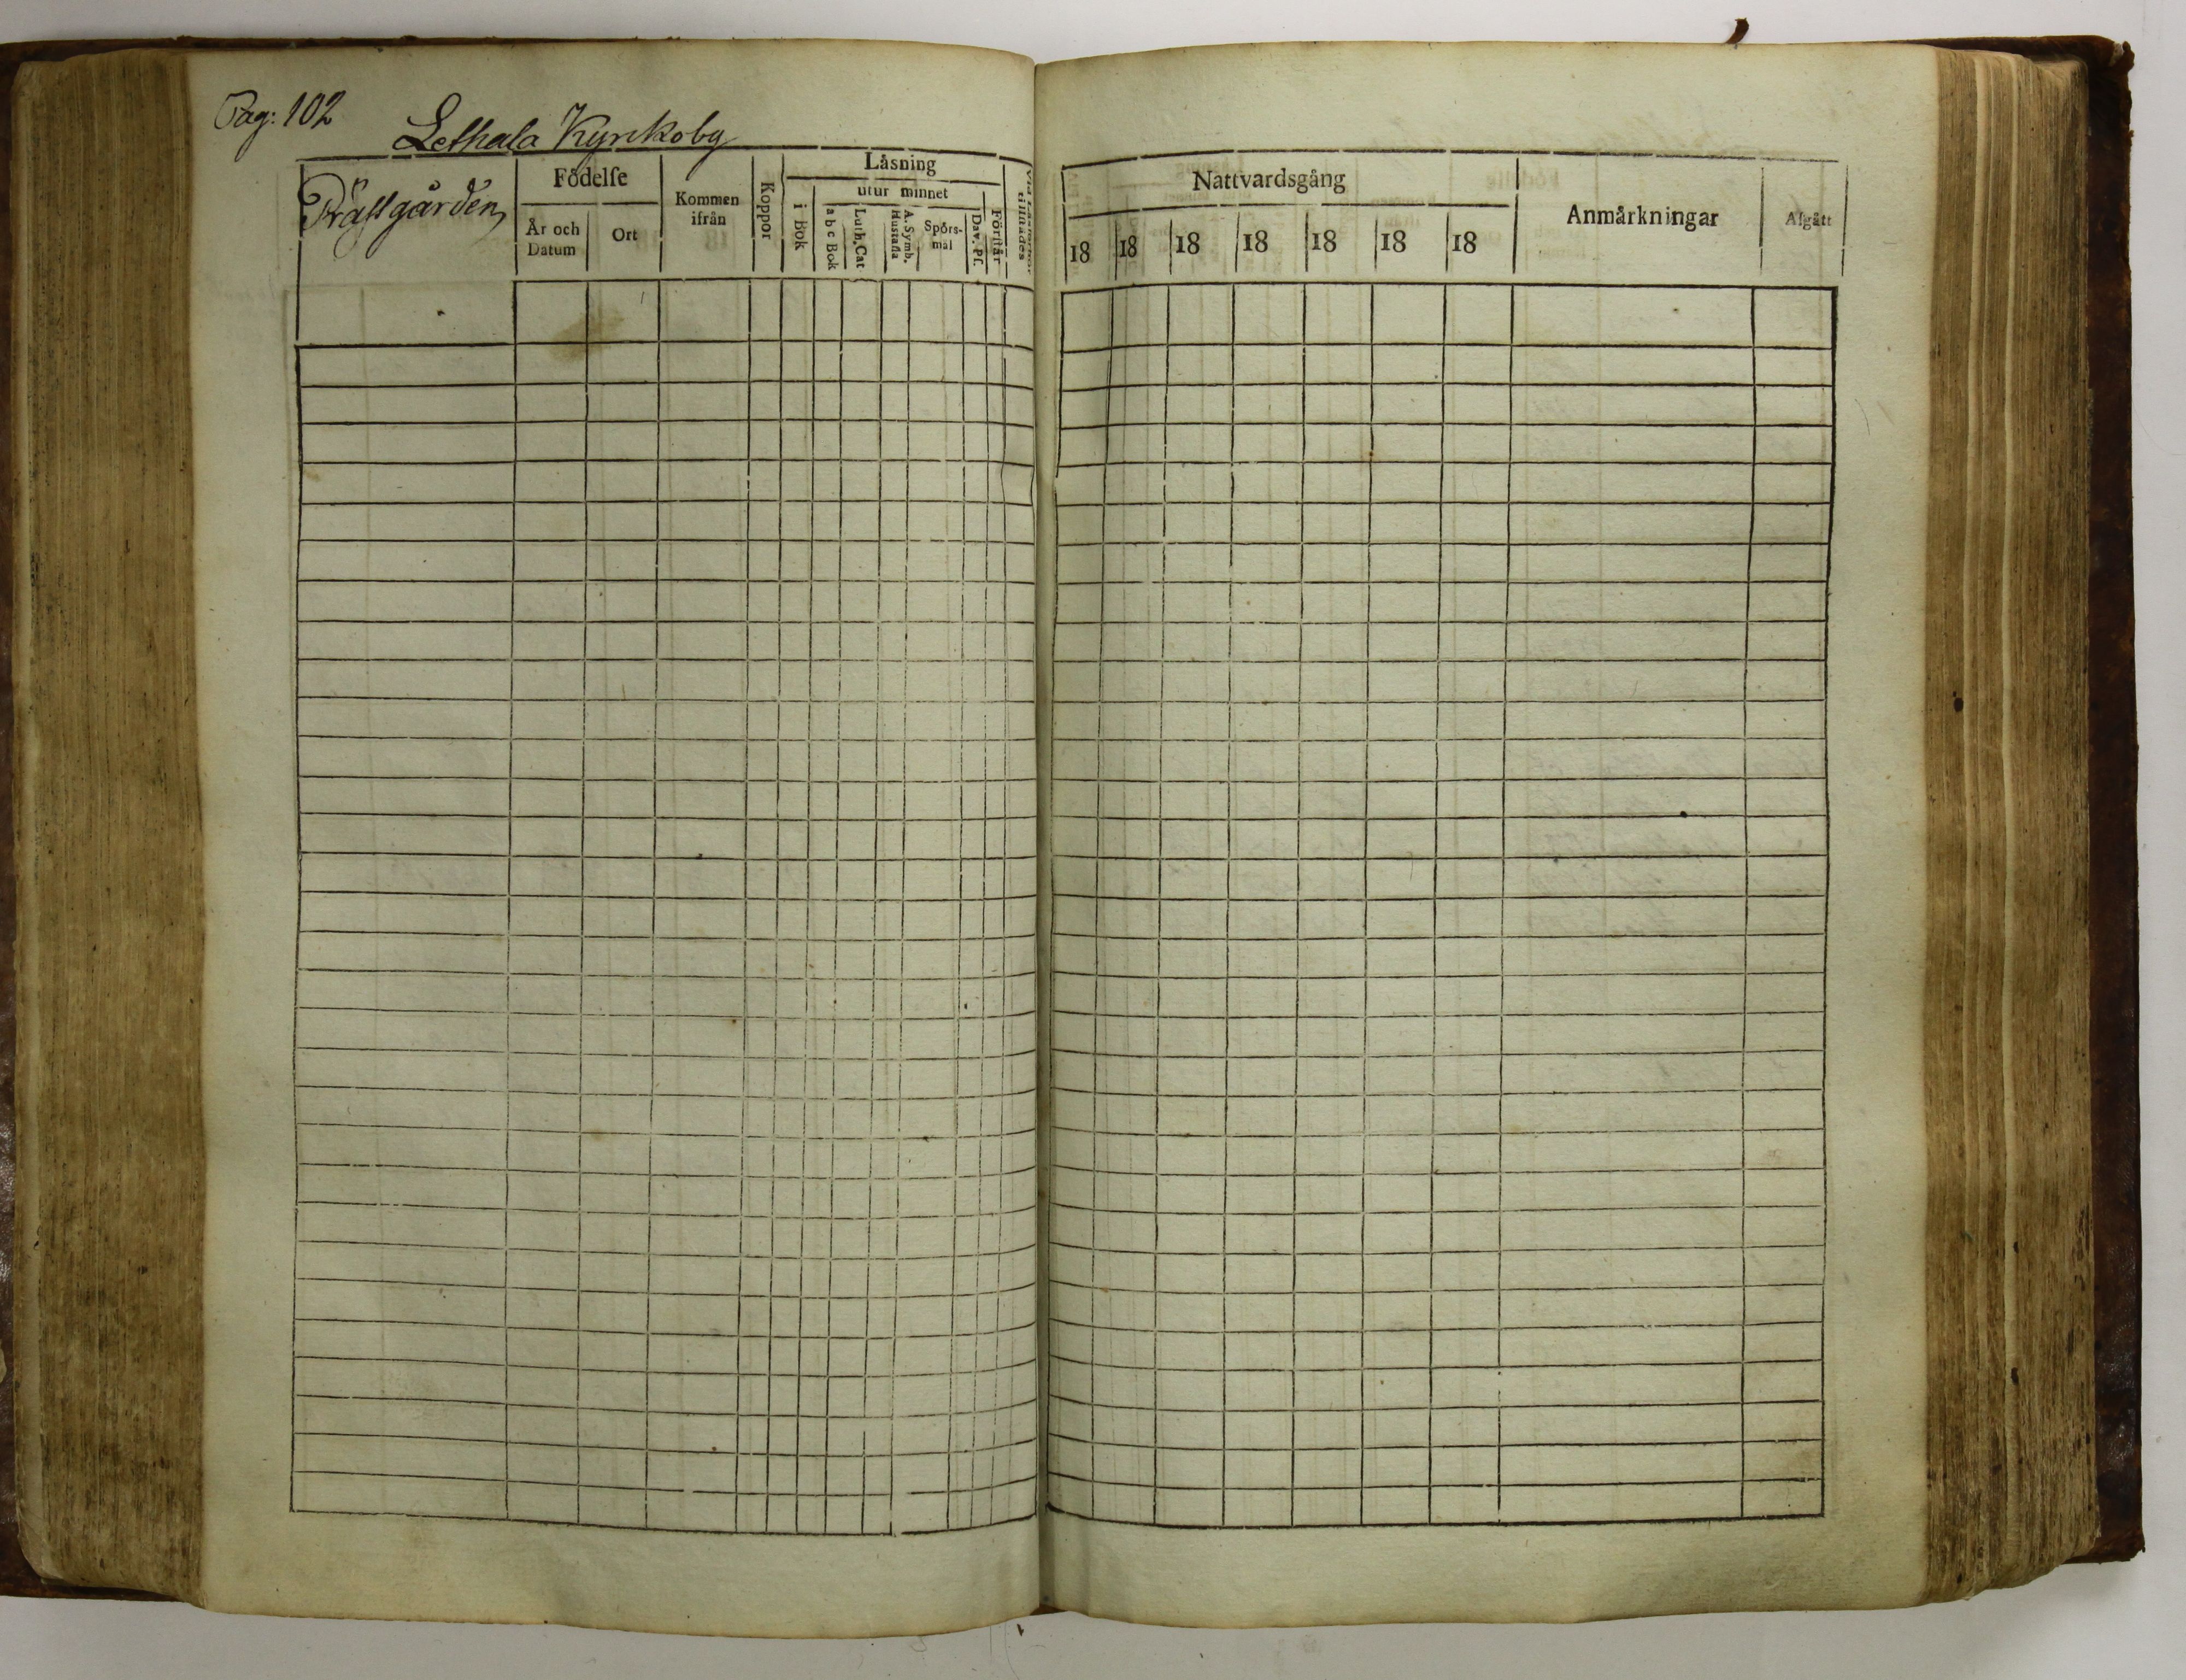 Pag: 102
Lethala Kyrkoby
Prästgården
Födelſe
År och Datum
Ort
Kommen ifrån
Koppor
Låsning
i Bok
utur minnet
a b c Bok
Luth. Cat
A. Symb. Hustafla
Spörs-mål
Dav. Pſ.
Förſtår
Nattvardsgång
18 18 18 18 18 18 18
Anmårkningar
Afgått